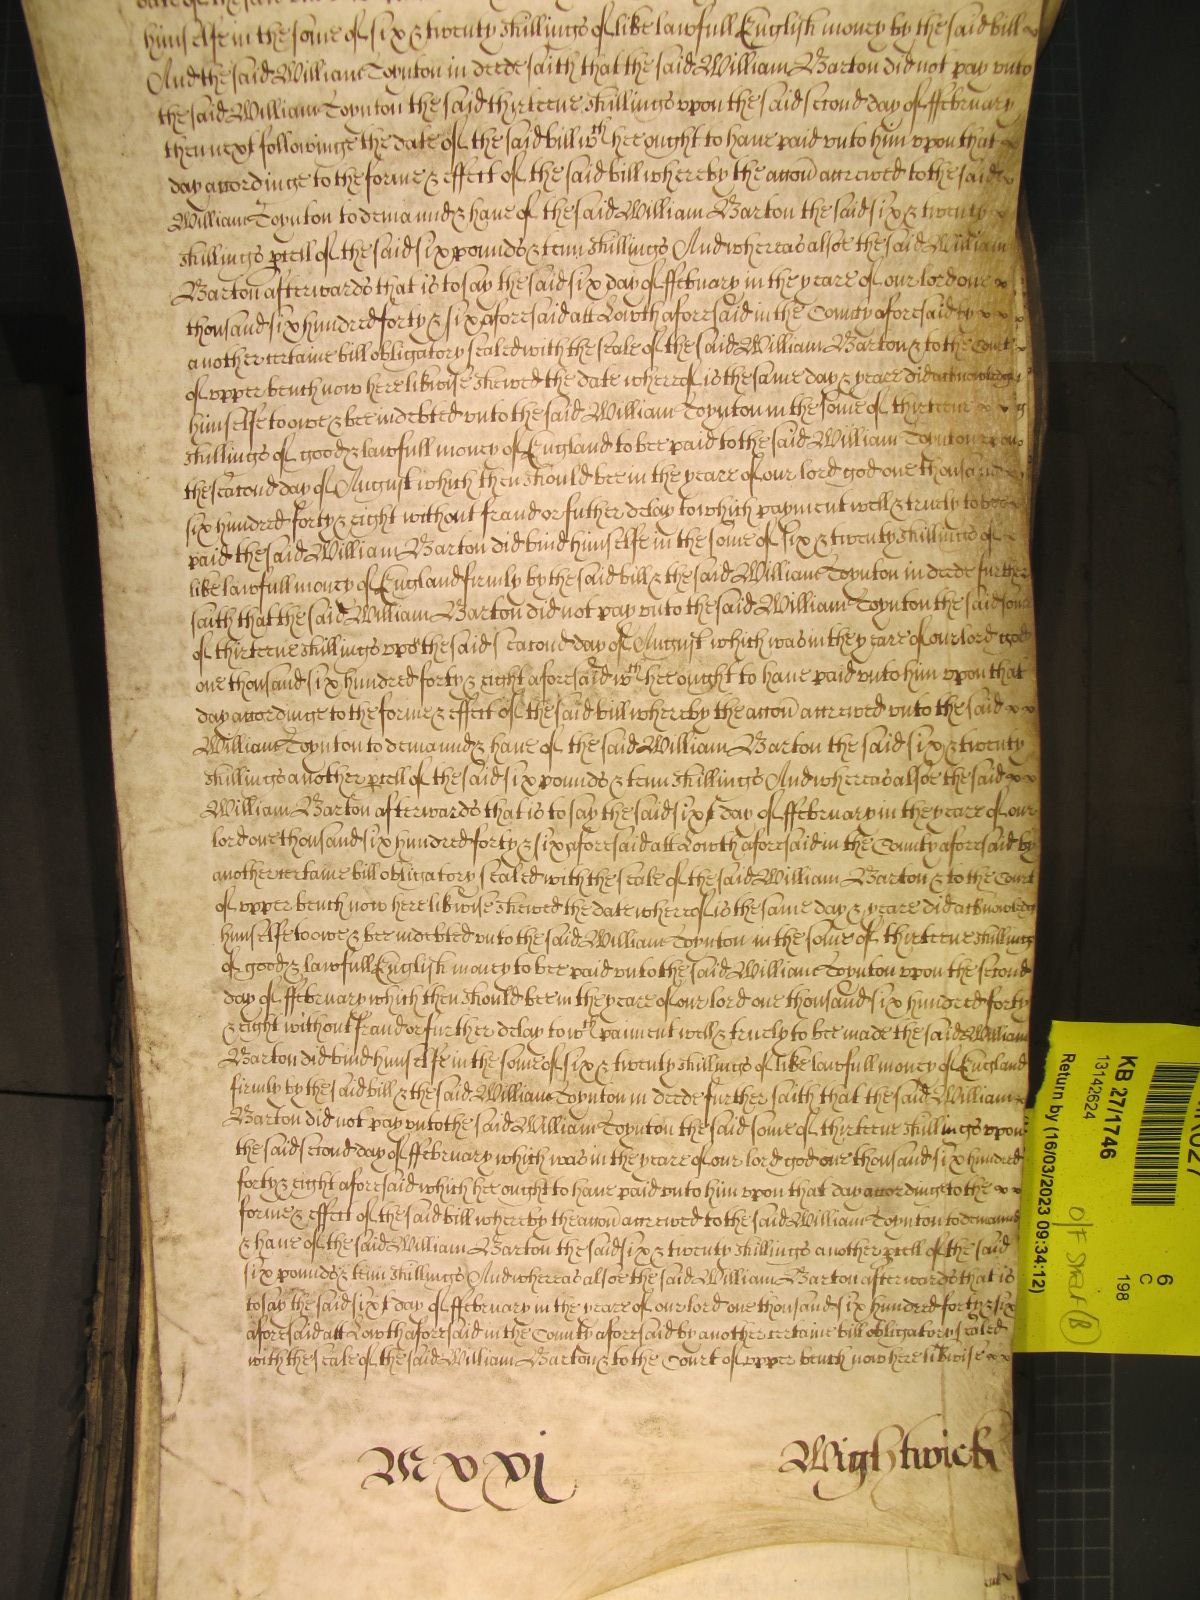 himselfe in the some of six & twenty shillings of like lawfull English money by the said bill
And the said William Toynton in deede saith that the said William Barton did not pay unto
the said William Toynton the said thirteene shillings upon the said second day of ffebruary
then next followinge the date of the said bill wch hee ought to have paid unto him upon that
day accordinge to the forme & effect of the said bill whereby the accon accrewed to the said
William Toynton to demaund & have of the said William Barton the said six & twenty
shillings pcell of the said six pounds & tenn shillings And whereas alsoe the said William
Barton afterwards that is to say the said six day of ffebruary in the yeare of our lord one
thousand six hundred forty & six aforesaid att Lowth aforesaid in the County aforesaid by
another certaine bill obligatory sealed with the seale of the said William Barton & to the Court
of upper bench now here likwise shewed the date whereof is the same day & yeare did acknowledge
himselfe to owe & bee indebted unto the said William Toynton in the some of thirteene
shillings of good & lawfull money of England to bee paid to the said William Toynton upon
the second day of August which then should bee in the yeare of our lord god one thousand
six hundred forty & eight without fraud or futher delay to which payment well & truely to bee
paid the said William Barton did bind himselfe in the some of six & twenty shillings of
like lawfull money of England firmly by the said bill & the said William Toynton in deede further
saith that the said William Barton did not pay unto the said William Toynton the said some
of thirteene shillings upo the said seacond day of August which was in the yeare of our lord god
one thousand six hundred forty & eight aforesaid wch hee ought to have paid unto him upon that
day accordinge to the forme & effect of the said bill whereby the accon accrewed unto the said
William Toynton to demaund & have of the said William Barton the said six & twenty
shillings another pcell of the said six pounds & tenn shillings And whereas alsoe the said
William Barton afterwards that is to say the said sixt day of ffebruary in the yeare of our
lord one thousand six hundred forty & six aforesaid att Lowth aforesaid in the County aforesaid by
another certaine bill obligatory sealed with the seale of the said William Barton & to the Court
of upper bench now here likwise shewed the date whereof is the same day & yeare did acknowledg
himselfe to owe & bee indebted unto the said William Toynton in the some of thirteene shillings
of good & lawfull English money to bee paid unto the said William Toynton upon the second
day of ffebruary which then should bee in the yeare of our lord one thousand six hundred forty
& eight without fraud or further delay to wch paiment well & truely to bee made the said William
Barton did bind himselfe in the some of six & twenty shillings of like lawfull money of England
firmly by the said bill & the said William Toynton in deede further saith that the said William
Barton did not pay unto the said William Toynton the said some of thirteene shillings upon
the said second day of ffebruary which was in the yeare of our lord god one thousand six hundred
forty & eight aforesaid which hee ought to have paid unto him upon that day accordinge to the
forme & effect of the said bill whereby the accon accrewed to the said William Toynton to demaund
& have of the said William Barton the said six & twenty shillings another pcell of the said
six pounds & tenn shillings And whereas alsoe the said William Barton afterwards that is
to say the said sixt day of ffebruary in the yeare of our lord one thousand six hundred forty & six
aforesaid att Lowth aforesaid in the County aforesaid by another certaine bill obligatory sealed
with the seale of the said William Barton & to the Court of upper bench now here likwise
M xxj
Wightwick
KB 27/1746
13142624
Return by (16/03/2023 09:34:12)
6
C
198
O/F Shelf (B)